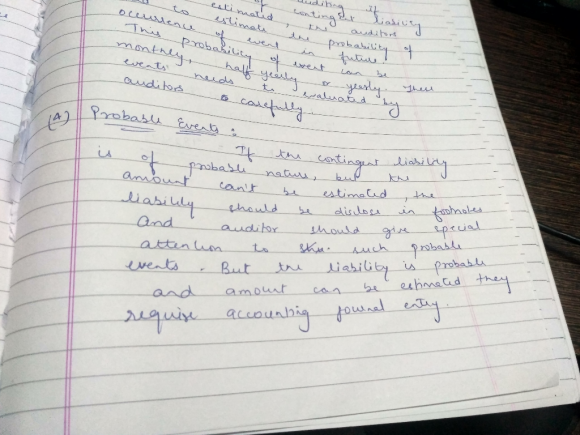 auditing if
of contingent liability
estimated, the auditors
to estimate the probability of
occurrence of event in future.
This probability of event can be
monthly, half yearly or yearly. These
events needs to evaluated by
auditors carefully.
(A) Probable Events :
If the contingent liability
is of probable nature, but the
amount can't be estimated, the
liability should be disclose in footnotes
and auditor should give special
attention to such probable
events. But the liability is probable
and amount can be estimated they
require accounting journal entry.